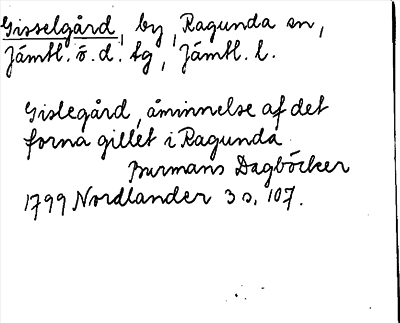 Gisselgård, by, Ragunda sn,
Jämtl. ö. d. tg, Jämtl. l.
Gislegård, åminnelse af det
forna gillet i Ragunda
Burmans Dagböcker
1799 Nordlander 3 s. 107.